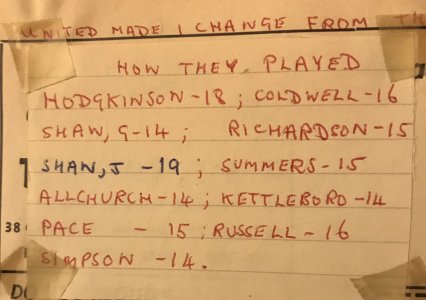 UNITED MADE 1 CHANGE FROM TH
HOW THEY PLAYED
HODGKINSON-18 ; COLDWELL-16
SHAW, G-14 ; RICHARDSON-15
SHAW, J -19 ; SUMMERS-15
ALLCHURCH-14 ; KETTLEBORO-14
38
PACE - 15 ; RUSSELL-16
SIMPSON -14.